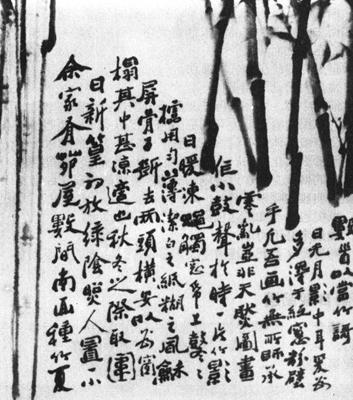 余家有茆屋數間南面種竹夏
日新篁初放綠陰照人置一小
榻其中甚涼適也秋冬之際取圍
屏骨子斷去兩頭橫安以為窗
櫺用勻薄潔白之紙糊之風龢
日暖凍蠅觸窓紙上鼕〻
作小鼓聲於時一片竹影
零亂豈非天然圖畫
乎凡吾画竹無所師承
多得于紙窓粉壁
日光月影中耳爰為
數首以當竹語